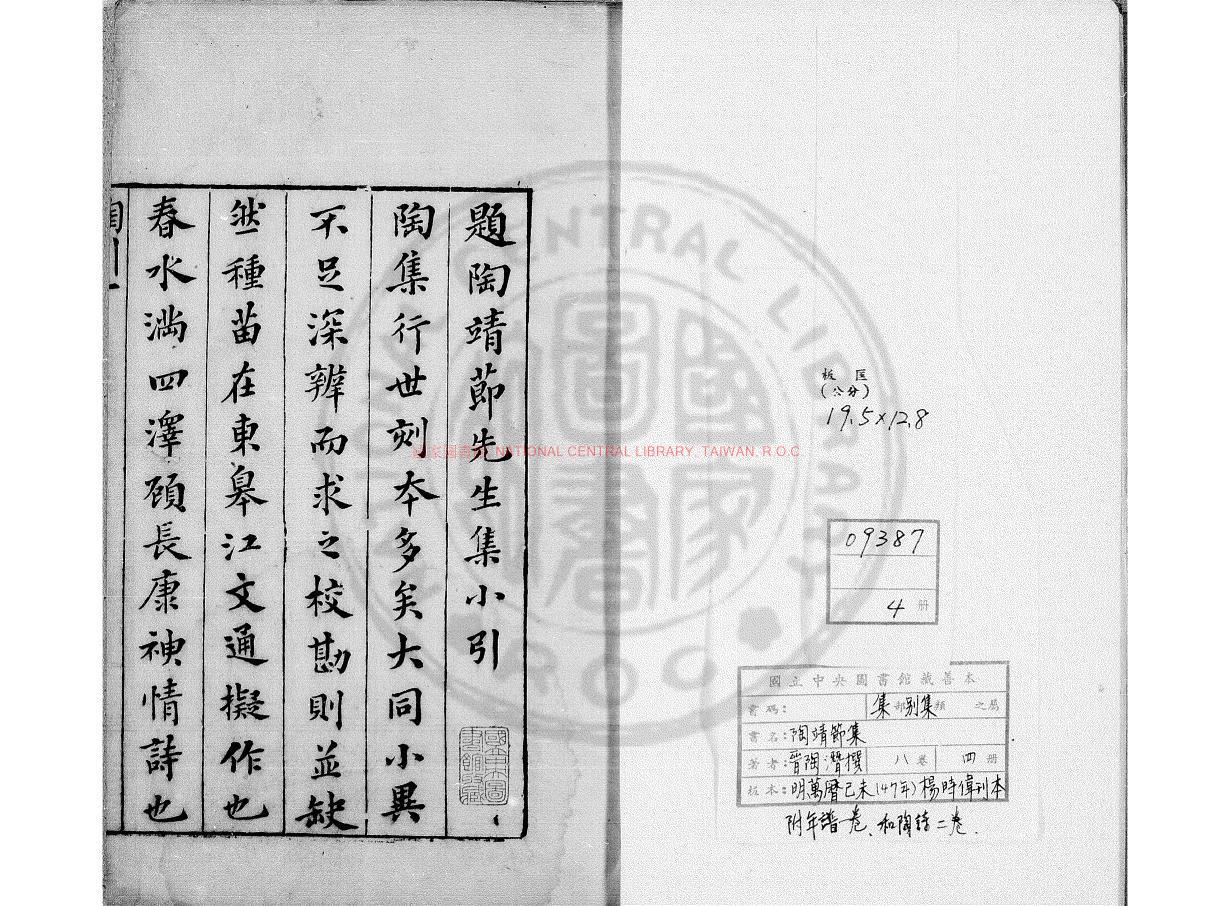 題陶靖節先生集小引
陶集行世刻夲多矣大同小異
不足深辨而求之校勘則並缺
然種苗在東皋江文通擬作也
春水滿四澤顾長康神情詩也
國立中央圖書館藏
NATIONAL CENTRAL LIBRARY, TAIWAN, R.O.C.
CENTRAL LIBRARY
R O C
板匡
(公分)
19.5×12.8
09387
4 册
國立中央圖書館藏善本
書碼: 集部別集類 之屬
書名:陶靖節集
著者:晉陶潛撰 八卷 四册
板本:明萬曆己未(47年)楊時偉刊本
附年譜一卷、和陶詩二卷.